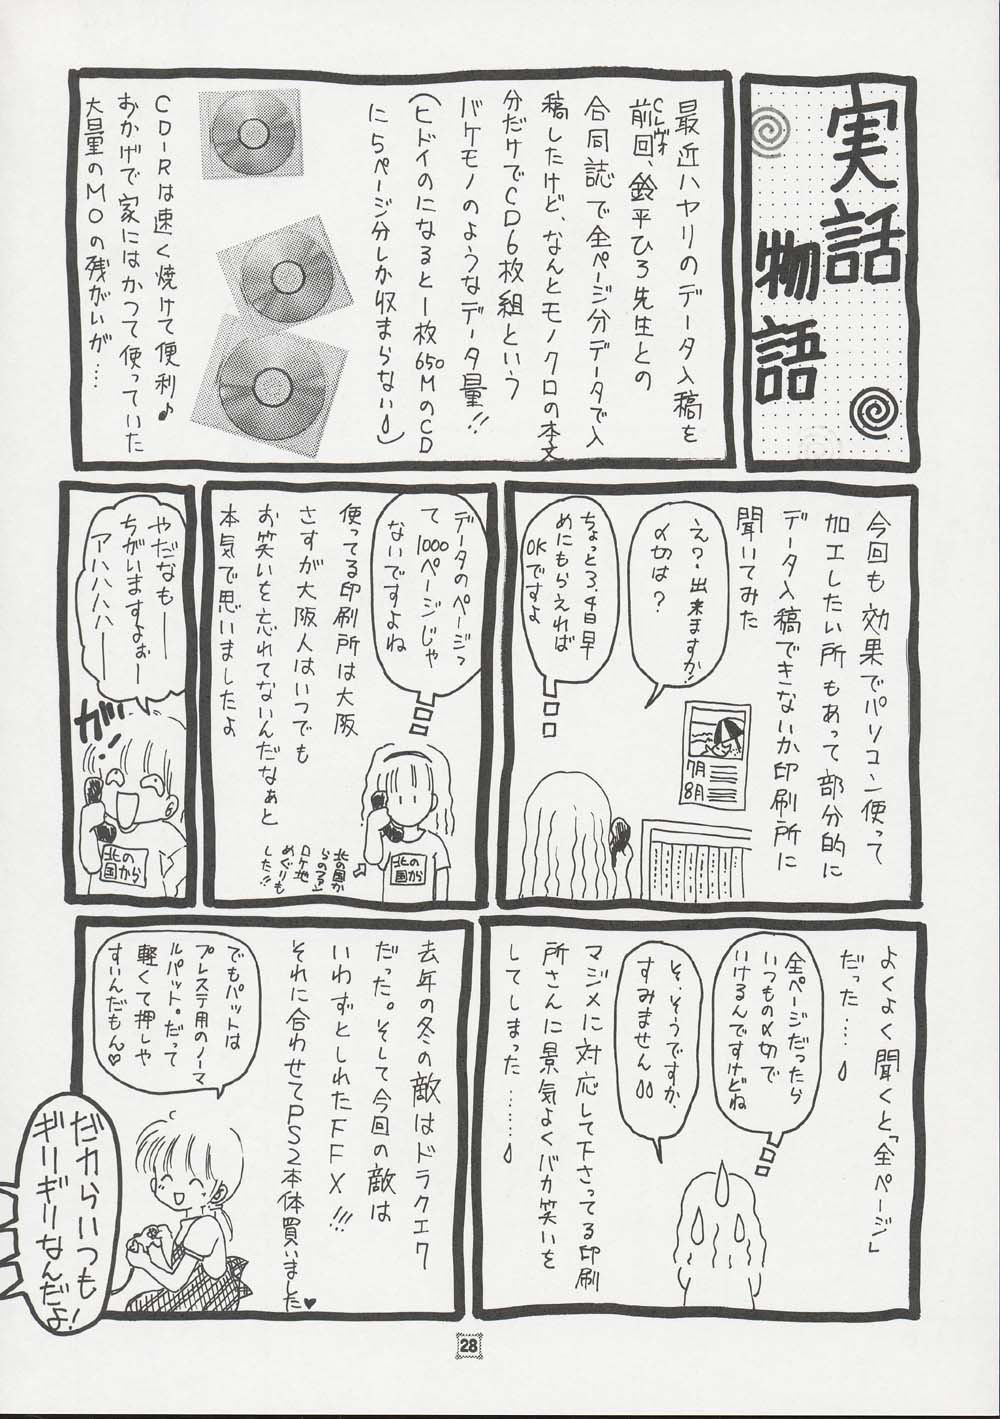 実話
物語
最近ハヤリのデータ入稿を
前回、鈴平ひろ先生との
合同誌で全ページ分データで入
稿したけど、なんとモノクロの本文
分だけでCD6枚組という
バケモノのようなデータ量!!
(ヒドイのになると一枚650MのCD
に5ページ分しか収まらない)
CD-Rは速く焼けて便利♪
おかげで家にはかつて使っていた
大量のMOの残がいが…
今回も効果でパソコン使って
加工したい所もあって部分的に
データ入稿できないか印刷所に
聞いてみた
え?出来ますか!
〆切は?
ちょっと3.4日早
めにもらえれば
OKですよ
7月
8月
データのページっ
て1000ページじゃ
ないですよね
使ってる印刷所は大阪
さすが大阪人はいつでも
お笑いを忘れてないんだなぁと
本気で思いましたよ
北の国か
らのスる
ロケ地
めぐりも
した!!
北の
国から
やだなも――
ちがいますよぉー
アハハハハ――
ガハ!
北の
国から
よくよく聞くと「全ページ」
だった…
全ページだったら
いつもの〆切で
いけるんですけどね
そ、そうですか、
すみません
マジメに対応して下さってる印刷
所さんに景気よくバカ笑いを
してしまった………
去年の冬の敵はドラクエ7
だった。そして今回の敵は
いわずとしれたFFX!!!
それに合わせてPS2本体買いました♥
でもパットは
プレステ用のノーマ
ルパット。だって
軽くて押しや
すいんだもん♥
だからいつも
ギリギリなんだよ!
28